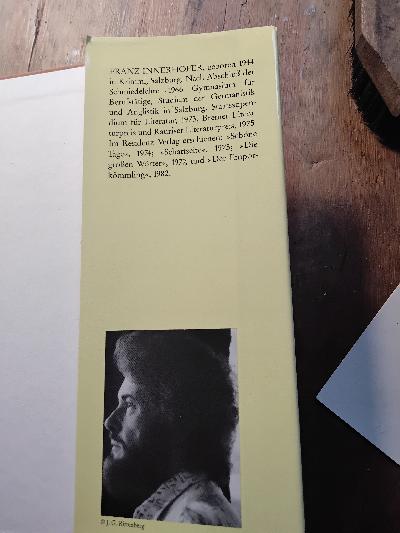 FRANZ INNERHOFER, geboren 1944
in Krimml, Salzburg. Nach Abschluß der
Schmiedelehre 1966 Gymnasium für
Berufstätige, Studium der Germanistik
und Anglistik in Salzburg. Staatsstipen-
dium für Literatur, 1973, Bremer Litera-
turpreis und Rauriser Literaturpreis, 1975.
Im Residenz Verlag erschienen: »Schöne
Tage«, 1974; »Schattseite«, 1975; »Die
großen Wörter«, 1977, und »Der Empor-
kömmling«, 1982.
© J. G.